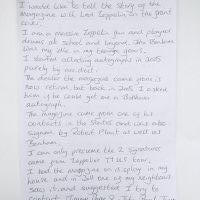 I would like to tell the story of the
magazine with Led Zeppelin on the front
cover.
I am a massive Zeppelin fan and played
drums at school and beyond. John Bonham
was my idle in my teenage years.
I started collecting autographs in 2015
purely by accident.
The dealer the magazine came from is
now retired but back in 2015 I asked
him if he could get me a Bonham
autograph.
The magazine came from one of his
contacts in the States and was also
signed by Robert Plant as well as
Bonham.
I can only presume the 2 signatures
came from Zeppelin 77 US tour.
I had the magazine on display in my
house and in 2021 one of my neighbours
saw it and suggested I try to
contact Jimmy Page & John Paul Jones